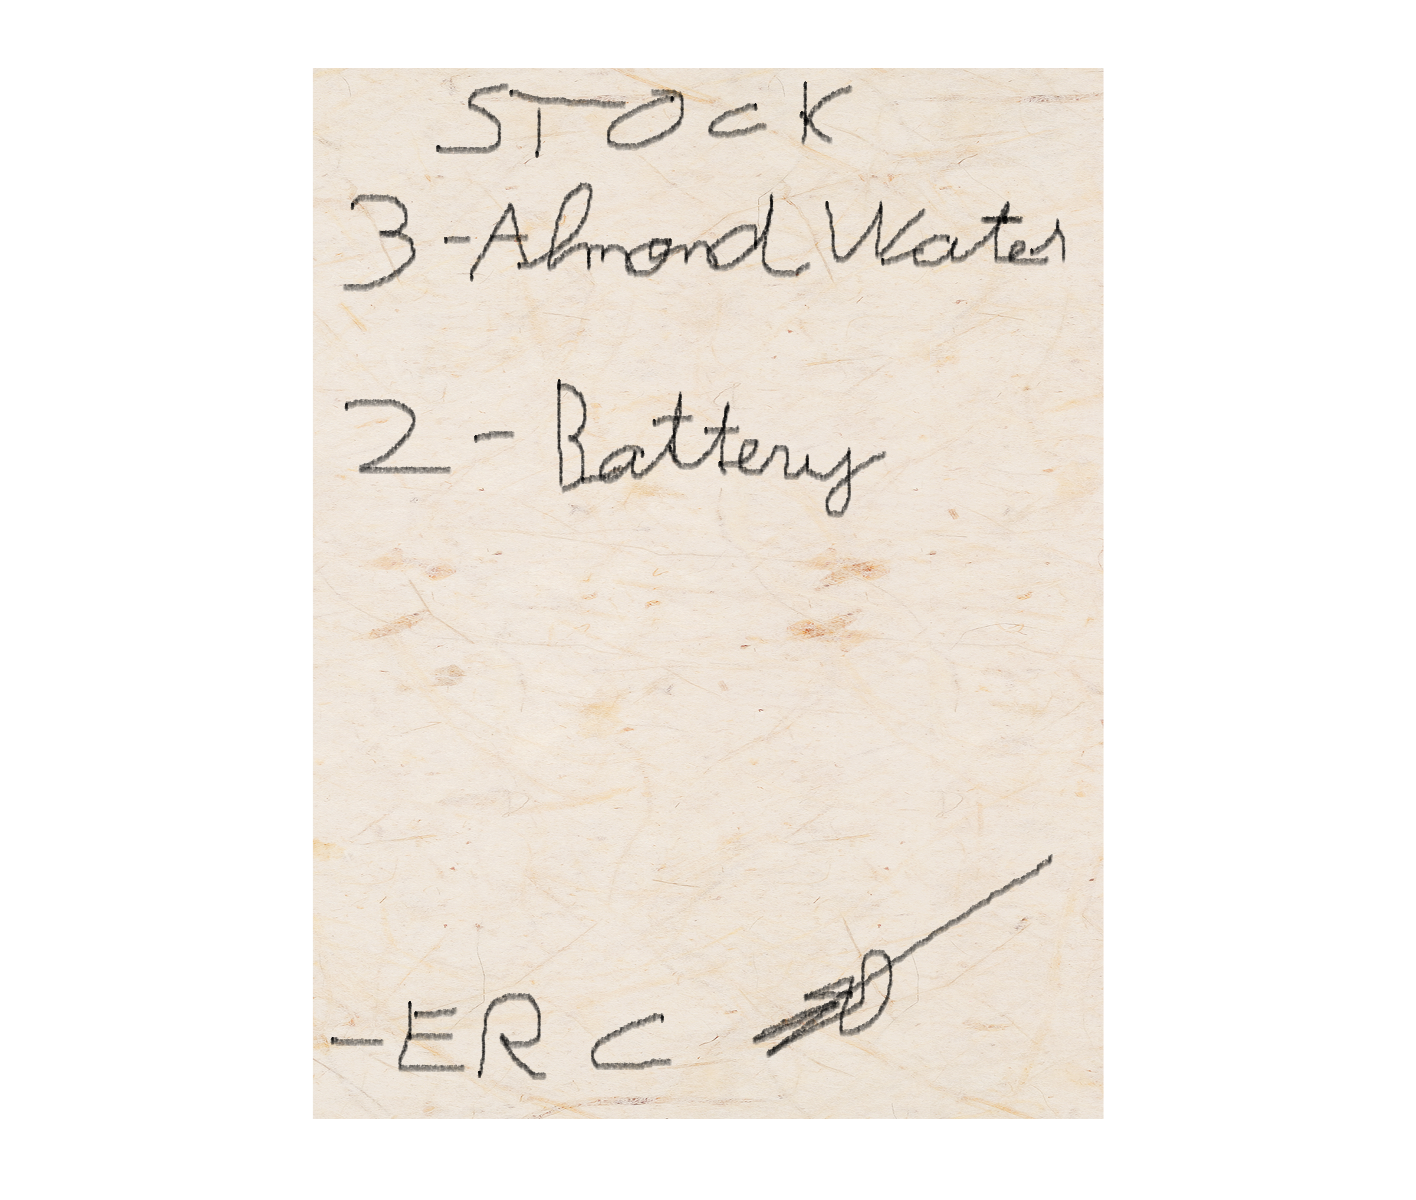 STOCK
3-Almond Water
2- Battery
-ERC